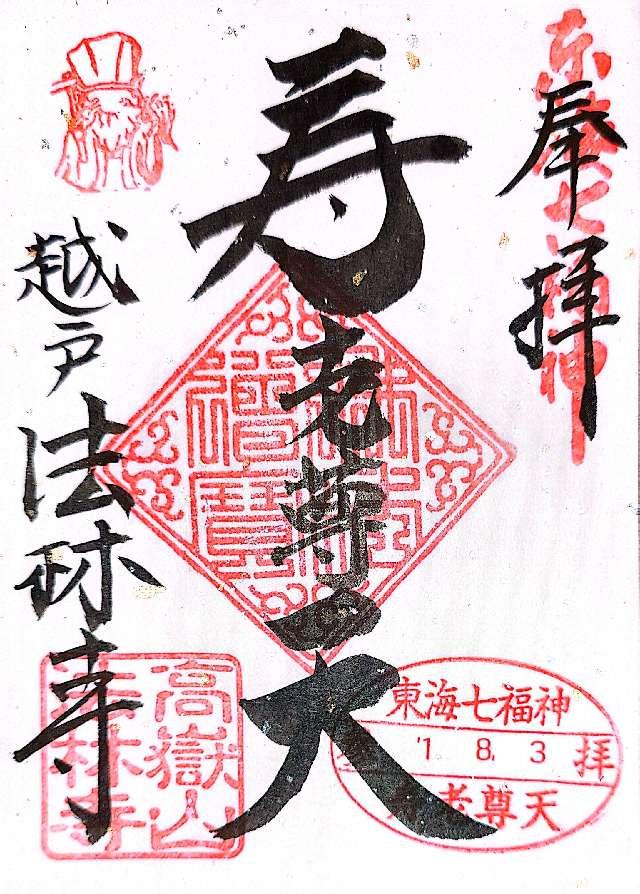 東海七福神
奉拝
寿老尊天
佛法僧寶
越戸 法林寺
高嶽山
法林寺
東海七福神
'1 8. 3 拝
老尊天